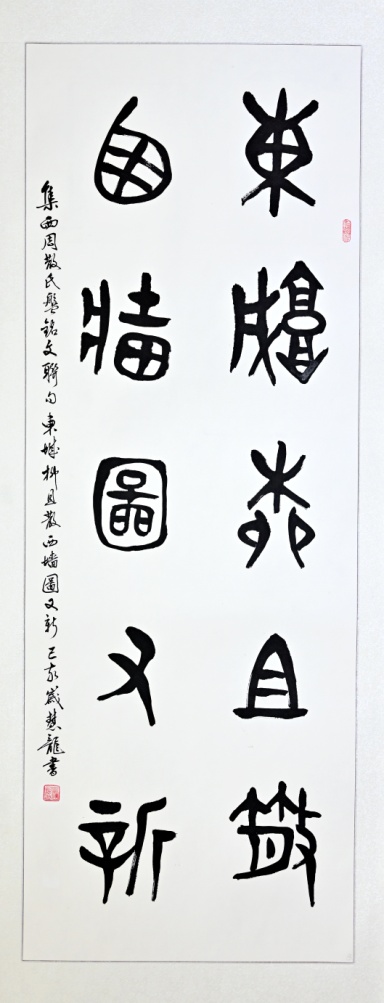 東城柳且散
西牆圖又新
集西周散氏盤銘文聯句東城柳且散西墻圖又新己亥慧龍書